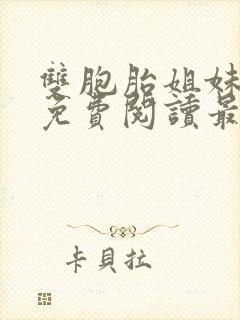 雙胞胎姐妹
免費閱讀最
卡貝拉